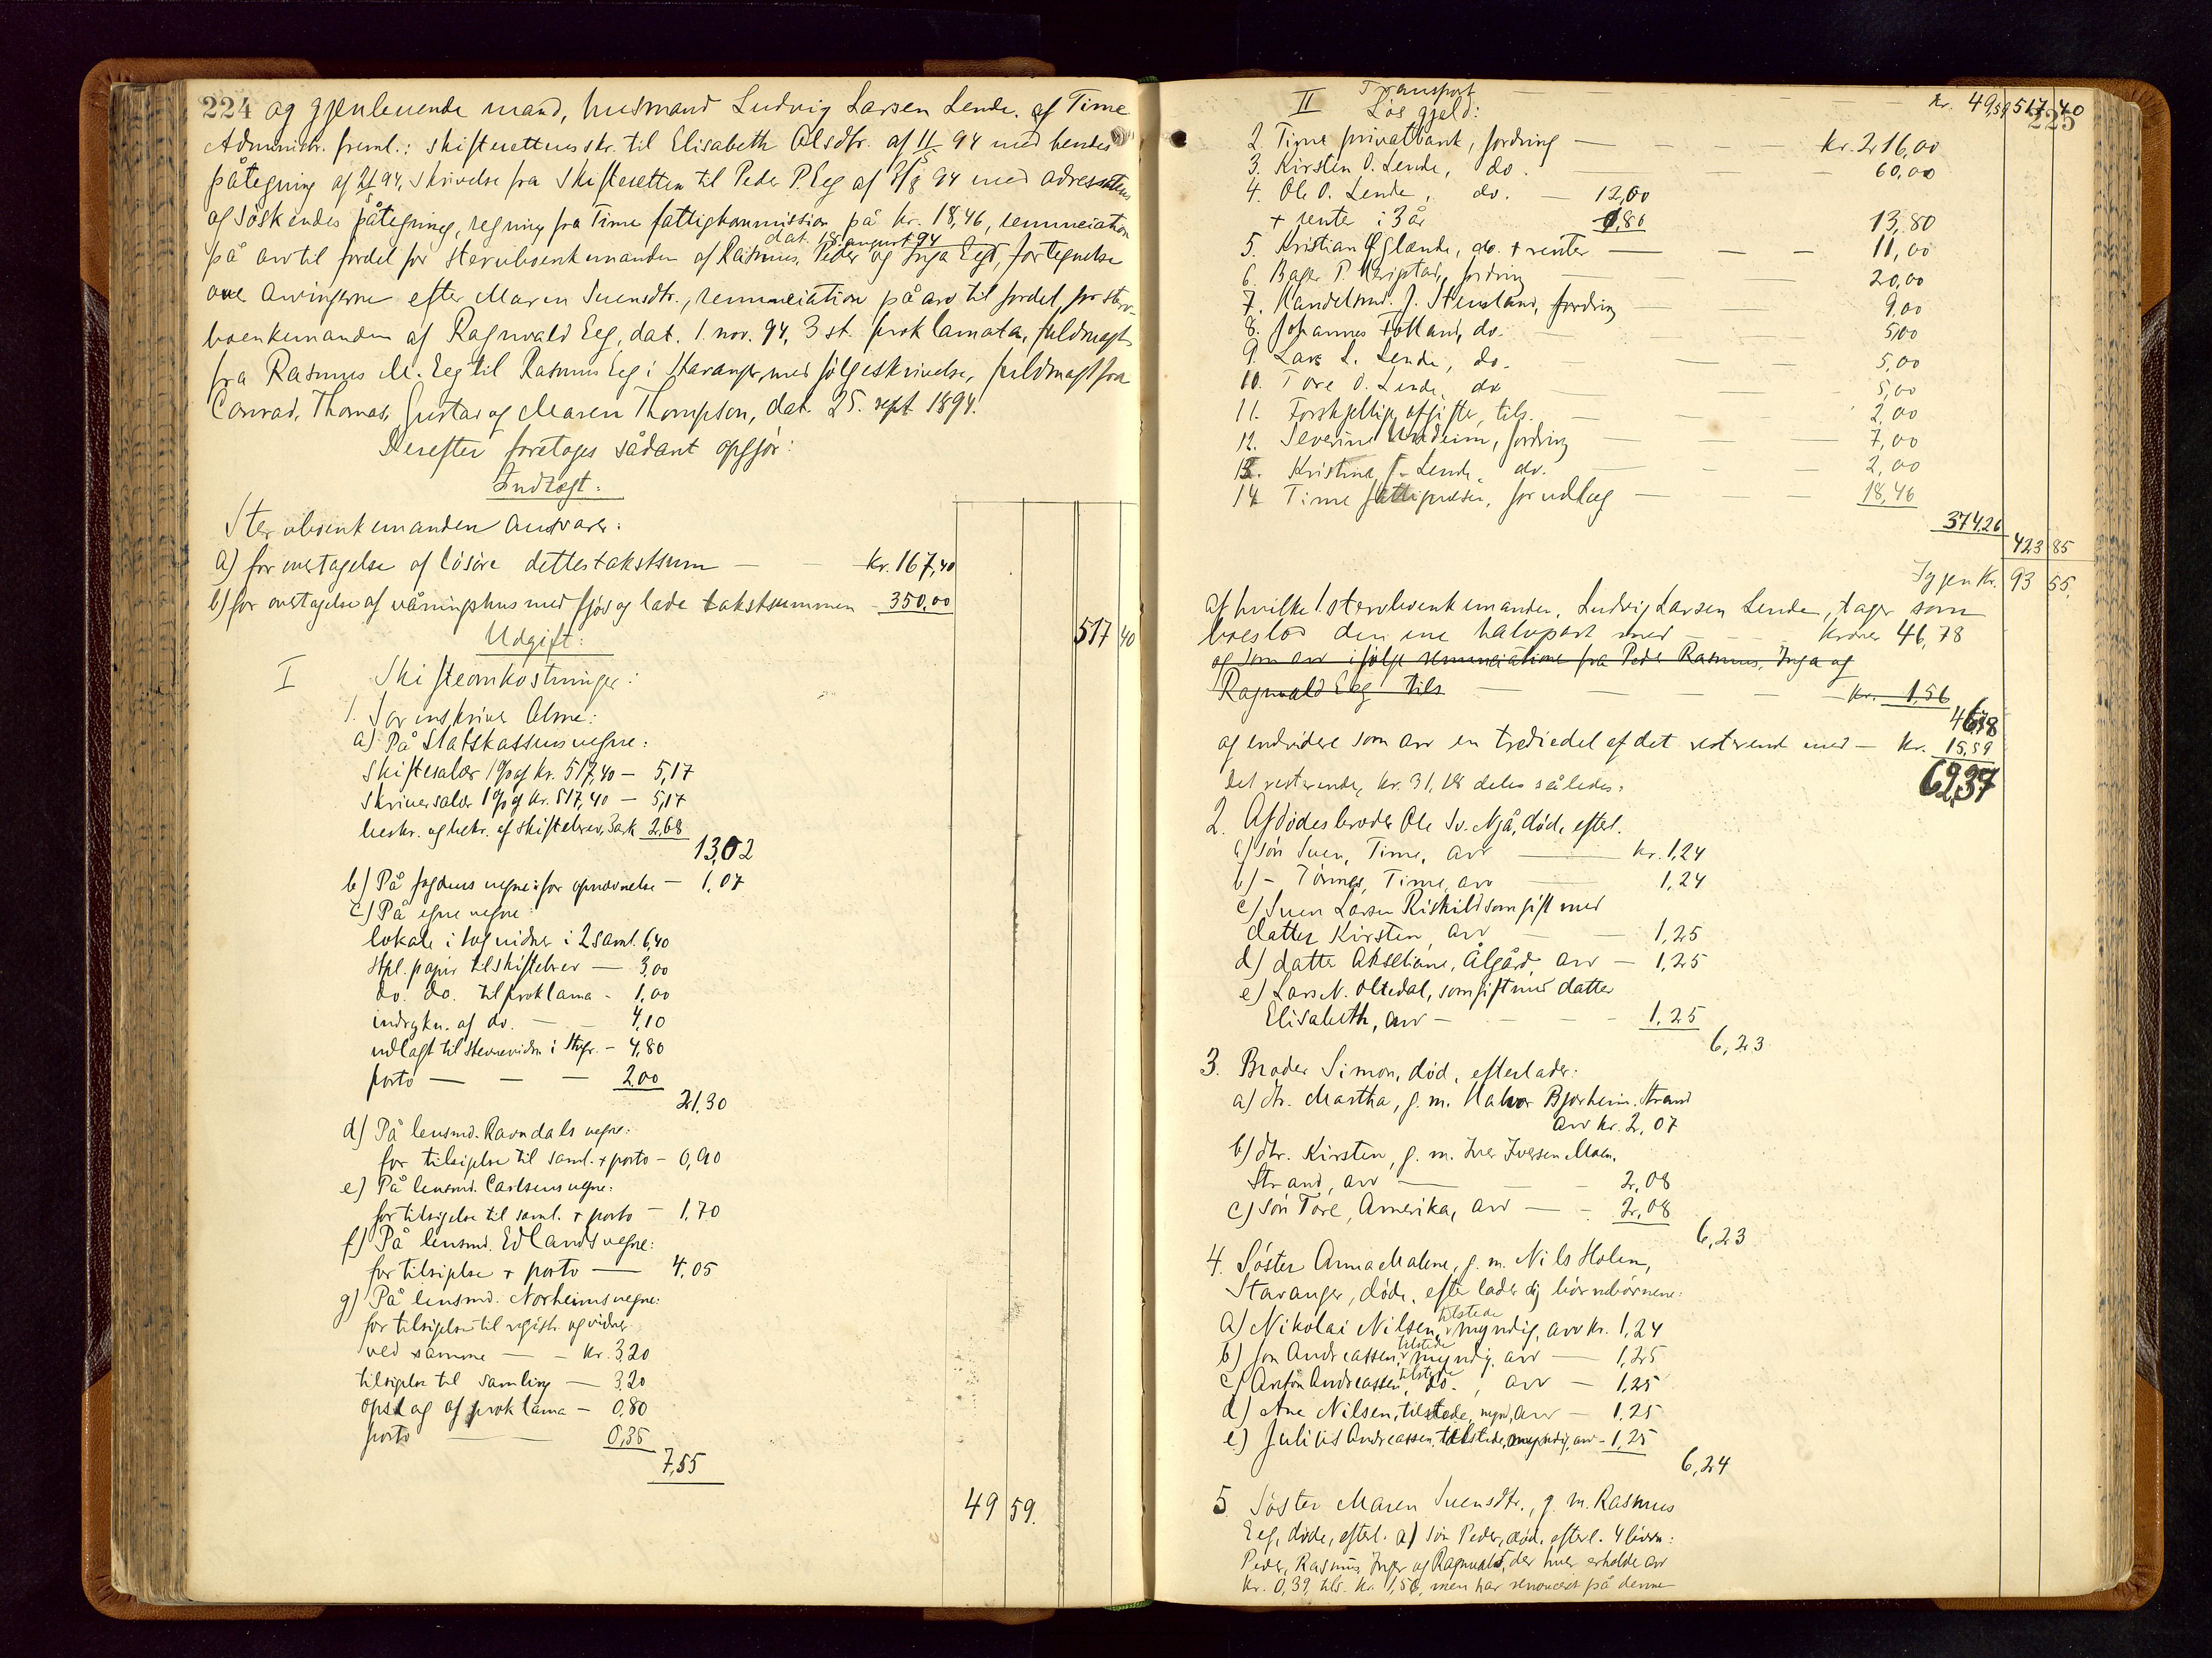 224 og gjenlevende mand, husmand Ludvig Larsen Lende, af Time
Administr. freml.: skifterettens skr. til Elisabeth Olsdtr. af 11/5 94 med hendes
påtegning af 21/5 94, skrivelse fra Skifteretten til Peder P. Eeg af 8/8 94 med adressatens
og söskendes påtegning, regning fra Time fattigkommission på kr. 18,46, renunciation
dat. 18 august 94
på arv til fordel for sterboenkemanden af Rasmus, Peder og Inga Eeg, fortegnelse
over arvingerne efter Maren Svensdtr., renunciation på arv til fordel for sterv-
boenkemanden af Ragnvald Eeg, dat. 1. nov. 94, 3 st. proklamata, fuldmagt
fra Rasmus M. Eeg til Rasmus Eeg i Stavanger med fölgeskrivelse, fuldmagt fra
Conrad, Thomas, Gustav og Maren Thompson, dat. 25. sept 1894.
Derefter foretages sådant opgjör:
Indtægt:
Stervboenkemanden ansvarer:
a) for overtagelse af lösöre dettes takstsum — kr. 167,40
b) for overtagelse af våningshus med fjøs og lade takstsummen 350,00
517 40
Udgift:
I Skifteomkostninger:
1. Sorenskriver Alme:
a) På Statskassens vegne:
Skiftesalær 1 % af kr. 517,40 — 5,17
Skriversalær 1 % af kr. 517,40 — 5,17
beskr. og bekr. af skiftebrev, 3 ark 2,68
13,02
b) På fogdens vegne: for opnævnelse — 1,07
c) På egne vegne:
lokale i tog vidner i 2 saml. 6,40
stpl. papir til skiftebrev — 3,00
do. do. til proklama - 1,00
indrykn. af do. — 4,10
udlagt til stevnevidn. i Stvgr. — 4,80
porto — — — 2,00
21,30
d) På lensmd. Ravndals vegne:
for tilsigelse til saml. + porto — 0,90
e) På lensmd. Carlsens vegne:
for tilsigelse til saml. + porto — 1,70
f) På lensmd. Edlands vegne:
for tilsigelse + porto — 4,05
g) På lensmd. Norheims vegne:
for tilsigelse til registr. og vidner
ved samme — — kr. 3,20
tilsigelse til samling — 3,20
opslag af proklama — 0,80
porto — 0,35
7,55
49 59.
225
Transport — kr. 49,59 517 40
II Lös gjeld:
2. Time privatbank, fordring — kr. 216,00
3. Kirsten O. Lende, do. — 60,00
4. Ole O. Lende, do. — 12,00
+ renter i 3 år 1,80 13,80
5. Kristian Øglænde, do. + renter — 11,00
6. Bager P. , fordring — 20,00
7. Handelsmd. J. Stensland, fordring 9,00
8. Johannes Fotland, do. 5,00
9. Lars L. Lende, do. 5,00
10. Tore O. Lende, do 5,00
11. Forskjellige afgifter, tils. 2,00
12. Severine Undheim, fordring 7,00
13. Kristina J. Lende, do. 2,00
14 Time fattigvæsen, for udlæg — 18,46
374,26
423 85
Igjen kr. 93 55.
af hvilke stervboenkemanden, Ludvig Larsen Lende, tager som
boeslod den ene halvpart med — kroner 46,78
og som arv ifölge renunciatione fra Peder Rasmus, Inga og
Ragnvald Eeg tils — kr. 1,56
46,78
og endvidere som arv en trediedel af det resterende med — kr. 15,59
62,37
Det resterende, kr. 31,18 deles således:
2. Afdödes broder Ole Sv. Njå, död, efterl.
a) sön Sven, Time, arv — kr. 1,24
b) — Tönnes, Time, arv 1,24
c) Sven Larsen Riskild som gift med
datter Kirsten, arv — 1,25
d) datter Akseliane, Ålgård, arv — 1,25
e) Lars N. Oltedal, som gift med datter
Elisabeth, arv — 1,25
6,23
3. Broder Simon, död, efterlader:
a) dtr. Martha, g. m. Halvor Bjorheim, Strand
arv kr. 2,07
b) dtr. Kirsten, g. m. Iver Iversen Moen,
Strand, arv — 2,08
c) sön Tore, Amerika, arv — 2,08
6,23
4. Söster Anna Malene, g. m. Nils Holen,
Stavanger, döde, efterlader sig börnebörnene:
a) Nikolai Nilsen, tilstede myndig, arv kr. 1,24
b) Jon Andreassen, tilstede myndig, arv — 1,25
c) Anton Andreassen, tilstede do., arv — 1,25
d) Ane Nilsen, tilstede, mynd, arv — 1,25
e) Julius Andreassen, tilstede, myndig, arv — 1,25
6,24
5 Söster Maren Svensdtr., g. m. Rasmus
Eeg, döde, efterl. a) sön Peder, död, efterl. 4 börn:
Peder, Rasmus, Inger og Ragnvald, der hver erholde arv
kr. 0,39, tils. kr. 1,56, men har renonceret på denne